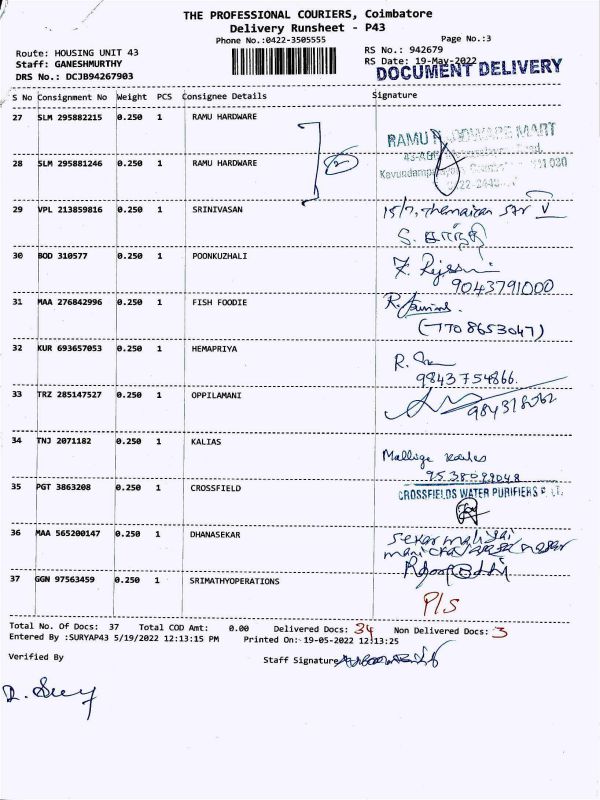 THE PROFESSIONAL COURIERS, Coimbatore
Delivery Runsheet - P43
Phone No.:0422-3505555
Page No.:3
Route: HOUSING UNIT 43
RS No.: 942679
Staff: GANESHMURTHY
RS Date: 19-May-2022
DRS No.: DCJB94267903
DOCUMENT DELIVERY
S No Consignment No Weight PCS Consignee Details Signature
27 SLM 295882215 0.250 1 RAMU HARDWARE
RAMU MART
28 SLM 295881246 0.250 1 RAMU HARDWARE
29 VPL 213859816 0.250 1 SRINIVASAN
15/7,
30 BOD 310577 0.250 1 POONKUZHALI
9043791000
31 MAA 276842996 0.250 1 FISH FOODIE
(7708653047)
32 KUR 693657053 0.250 1 HEMAPRIYA
R.
9843754866.
33 TRZ 285147527 0.250 1 OPPILAMANI
34 TNJ 2071182 0.250 1 KALIAS
35 PGT 3863208 0.250 1 CROSSFIELD
CROSSFIELDS WATER PURIFIERS
36 MAA 565200147 0.250 1 DHANASEKAR
37 GGN 97563459 0.250 1 SRIMATHYOPERATIONS
P/S
Total No. Of Docs: 37 Total COD Amt: 0.00 Delivered Docs: 34 Non Delivered Docs: 3
Entered By :SURYAP43 5/19/2022 12:13:15 PM Printed On: 19-05-2022 12:13:25
Verified By
Staff Signature